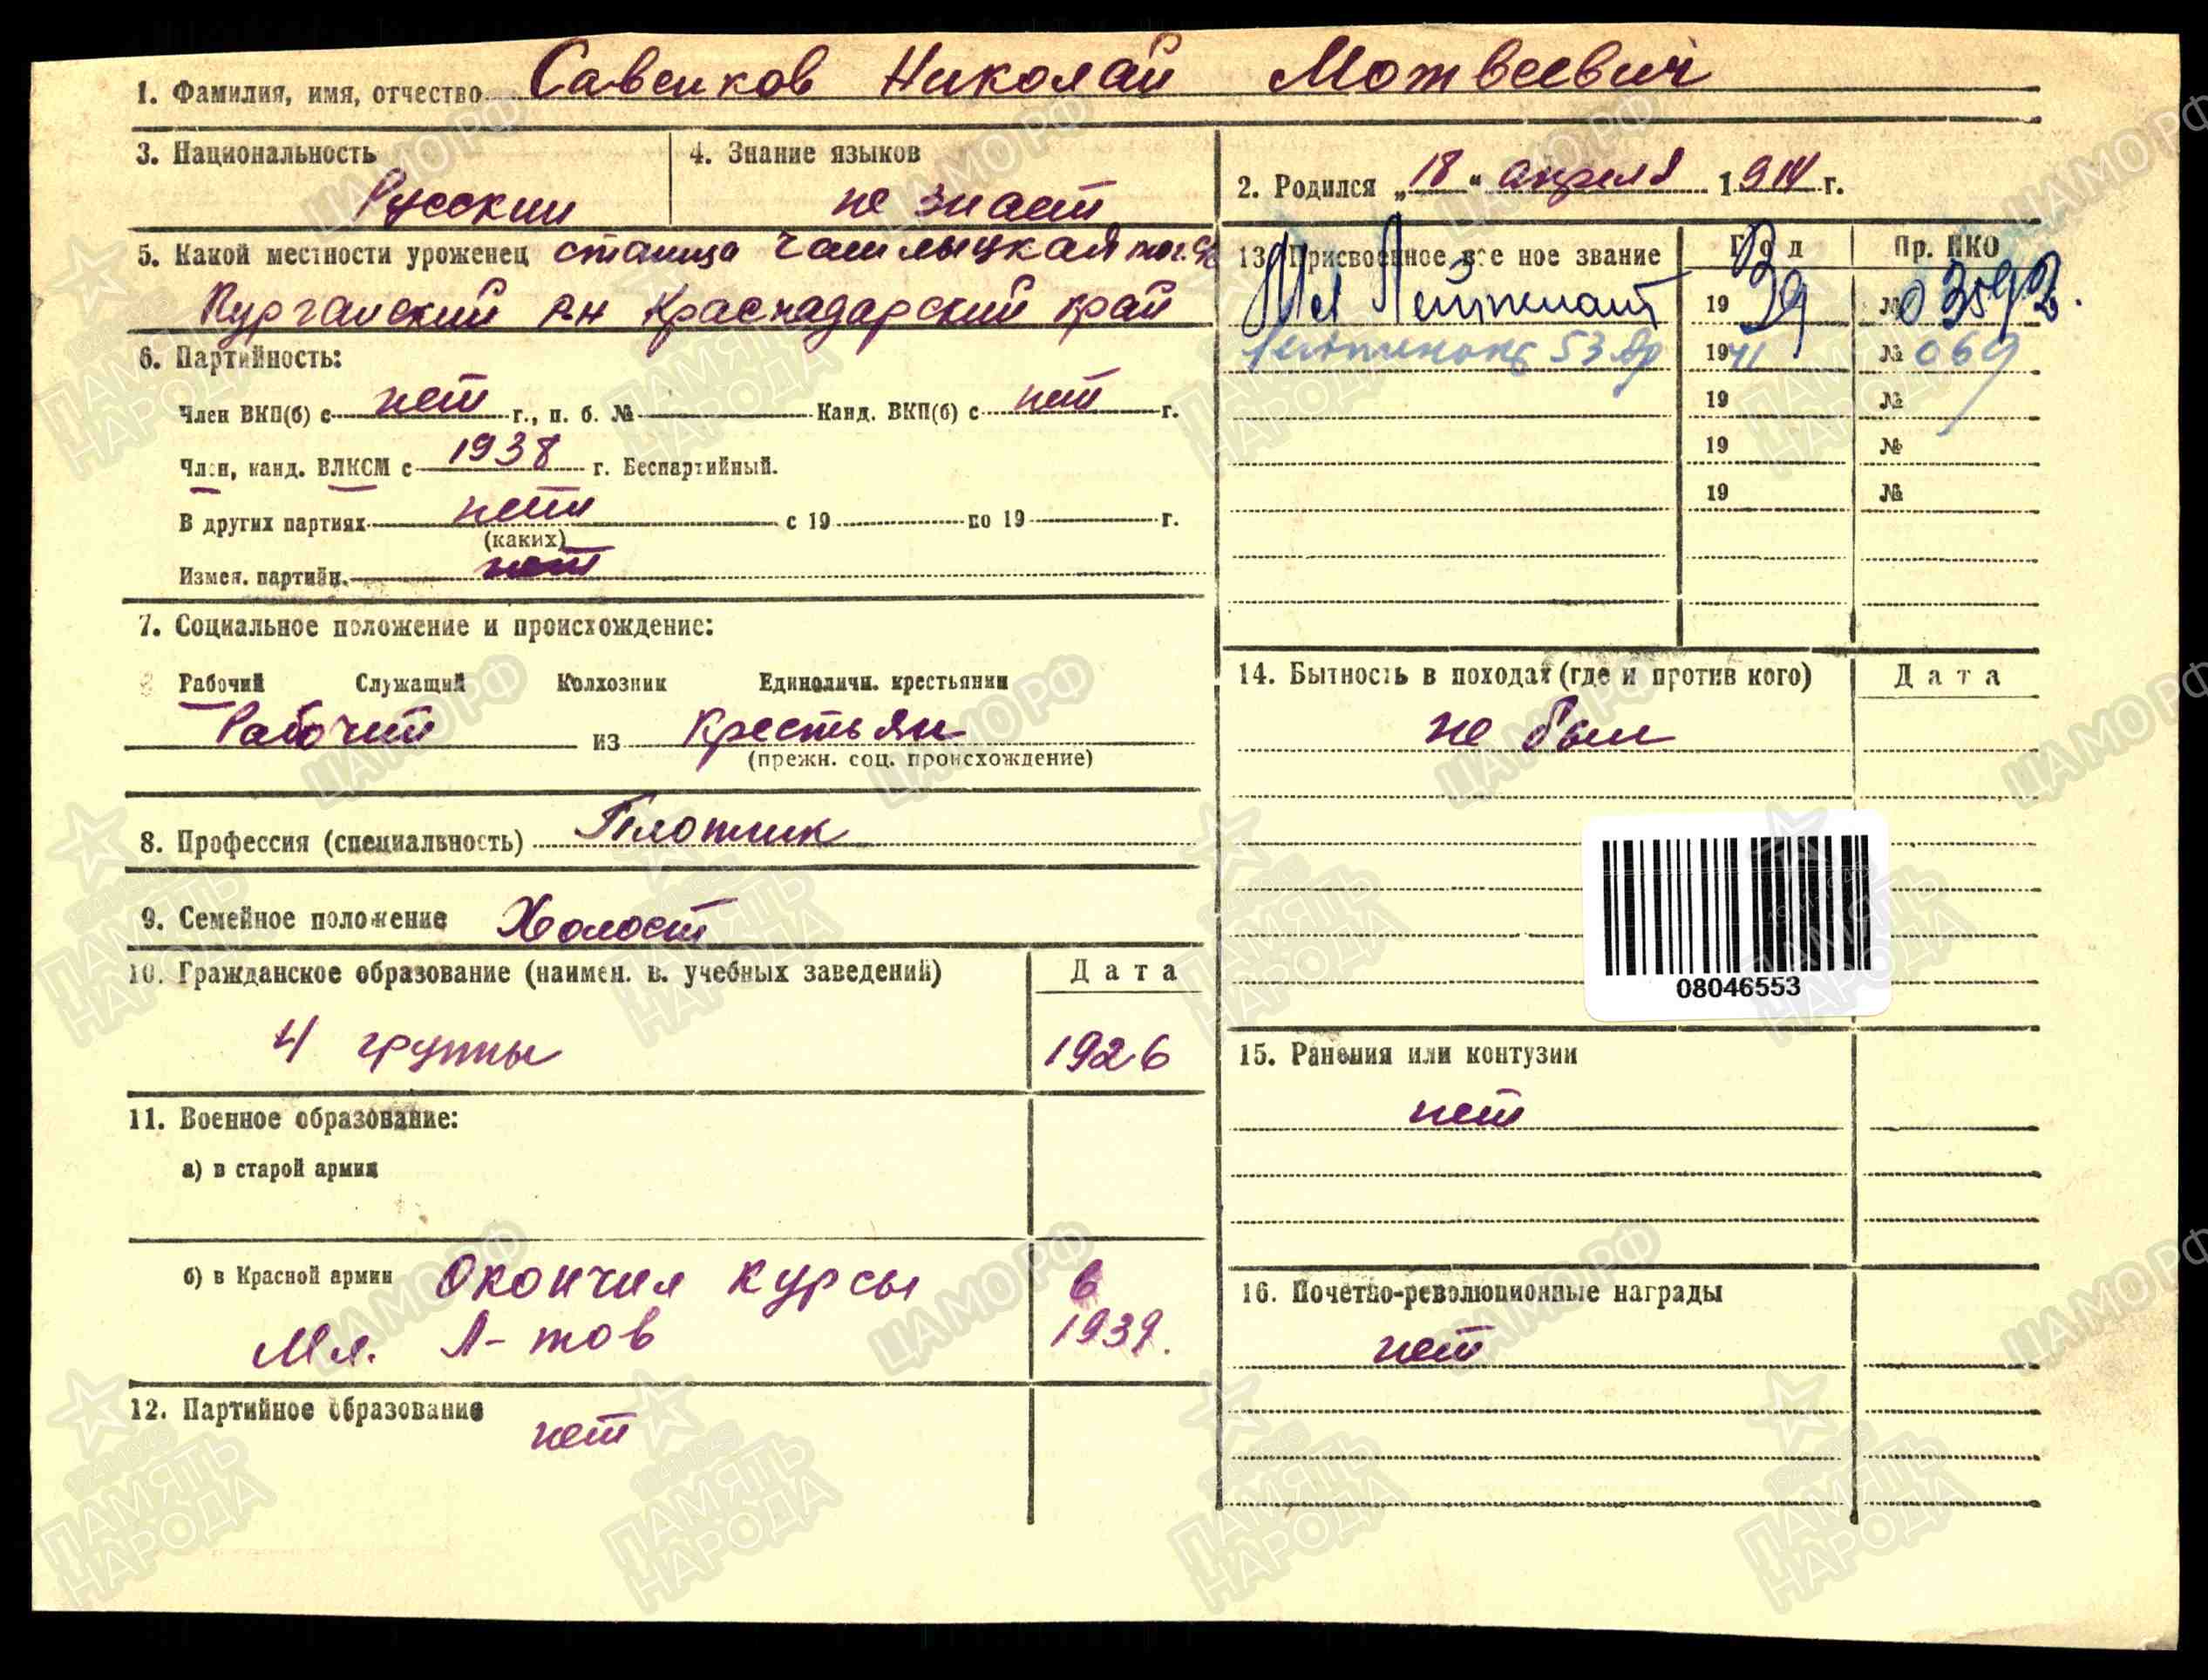 1. Фамилия, имя, отчество Савенков Николай Матвеевич
3. Национальность
Русский
4. Знание языков
не знает
2. Родился „18" апреля 1914 г.
5. Какой местности уроженец станица Чамлыцкая
Курганский р-н Краснадарский край
13. Присвоенное военное звание
Год
Пр. НКО
Мл Лейтенант
1939
№ 03592.
Лейтенант 53 Ар
1941
№ 069
19
№
19
№
19
№
6. Партийность:
Член ВКП(б) с нет г., п. б. № Канд. ВКП(б) с нет г.
Член, канд. ВЛКСМ с 1938 г. Беспартийный.
В других партиях нет с 19 по 19 г.
(каких)
Измен. партийн. нет
7. Социальное положение и происхождение:
Рабочий Служащий Колхозник Единоличн. крестьянин
Рабочий из крестьян
(прежн. соц. происхождение)
8. Профессия (специальность) Плотник
9. Семейное положение Холост
10. Гражданское образование (наимен. в. учебных заведений)
Дата
4 группы
1926
11. Военное образование:
а) в старой армии
б) в Красной армии Окончил курсы
6
Мл. Л-тов
1939.
12. Партийное образование
нет
14. Бытность в походах (где и против кого)
Дата
не был
08046553
15. Ранения или контузии
нет
16. Почетно-революционные награды
нет
ЦАМО.РФ
ПАМЯТЬ
НАРОДА